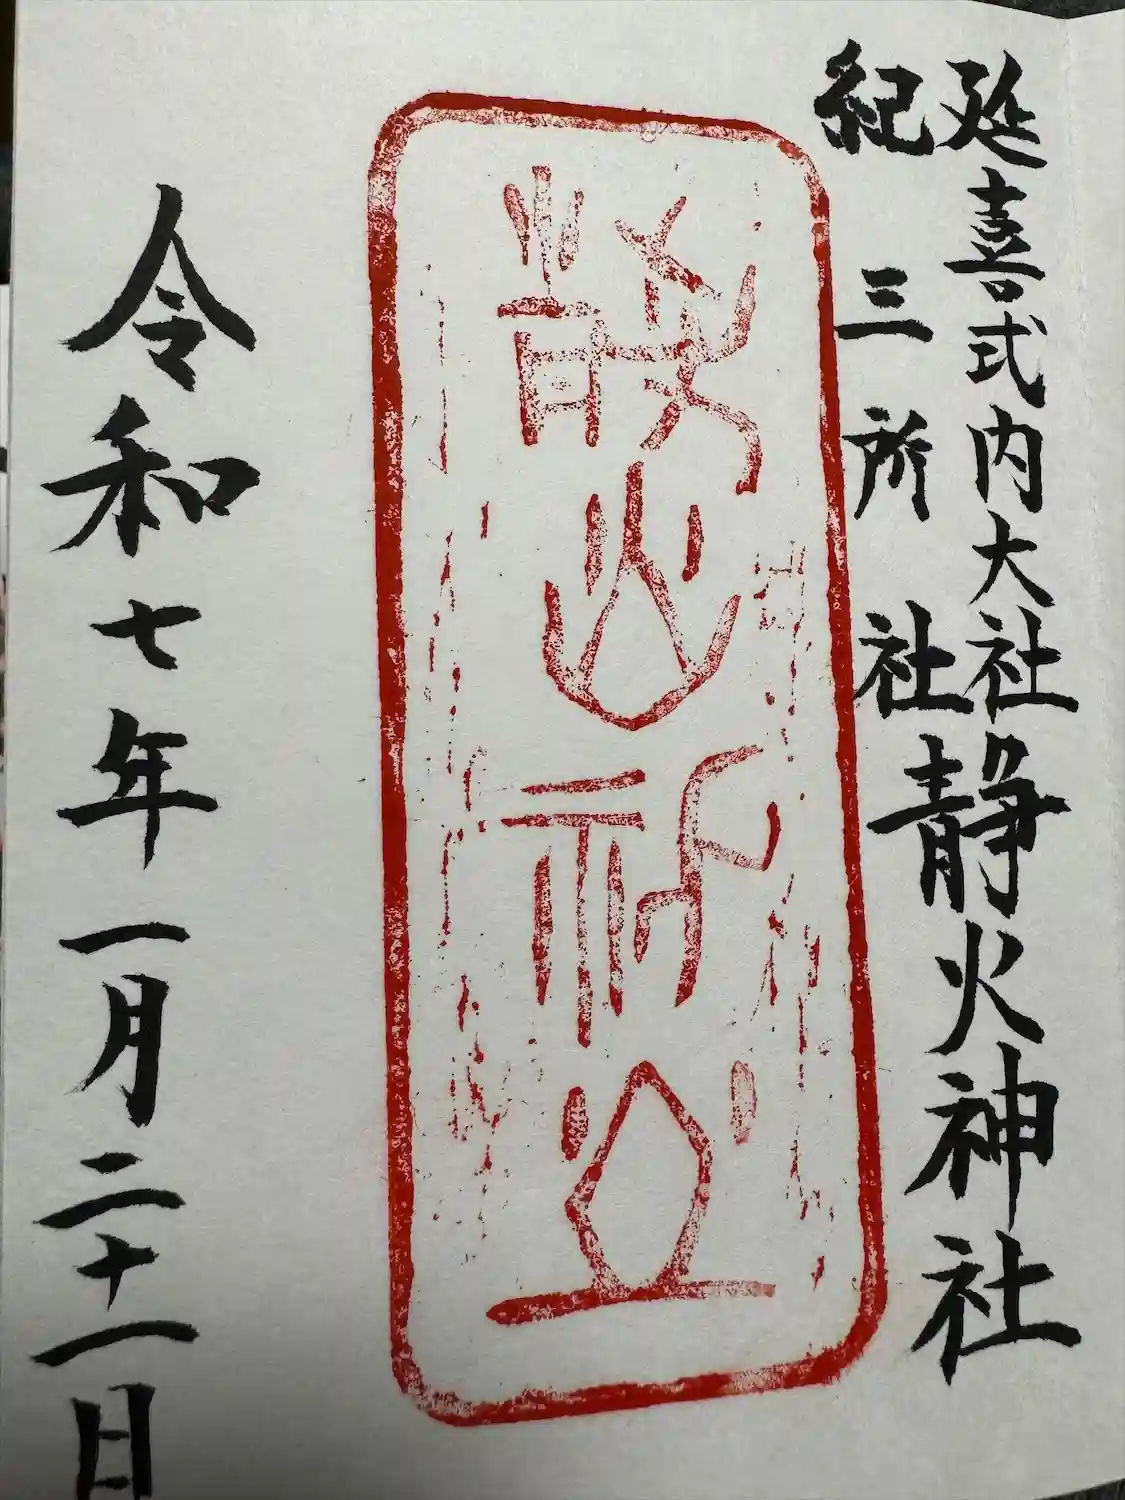 延喜式内大社
紀三所社
静火神社
令和七年一月二十一日